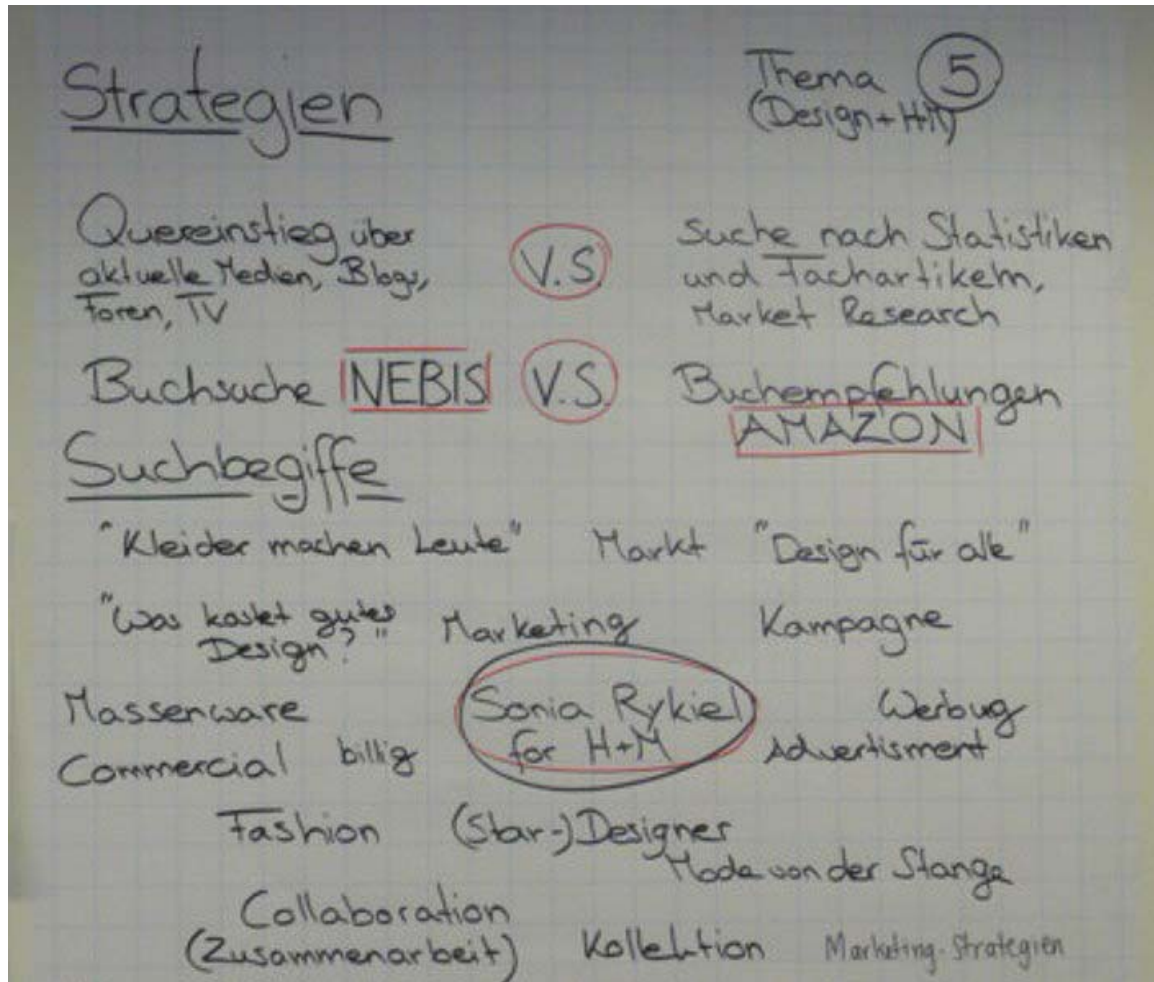 Strategien
Thema 5
(Design + H+M)
Quereinstieg über
aktuelle Medien, Blogs,
Foren, TV
V.S.
Suche nach Statistiken
und Fachartikeln,
Market Research
Buchsuche NEBIS V.S. Buchempfehlungen
AMAZON
Suchbegiffe
"Kleider machen Leute" Markt "Design für alle"
"Was kostet gutes
Design?"
Marketing Kampagne
Massenware Sonia Rykiel
for H+M
Werbug
Commercial billig Advertisment
Fashion (Star-)Designer
Mode von der Stange
Collaboration
(Zusammenarbeit) Kollektion Marketing-Strategien